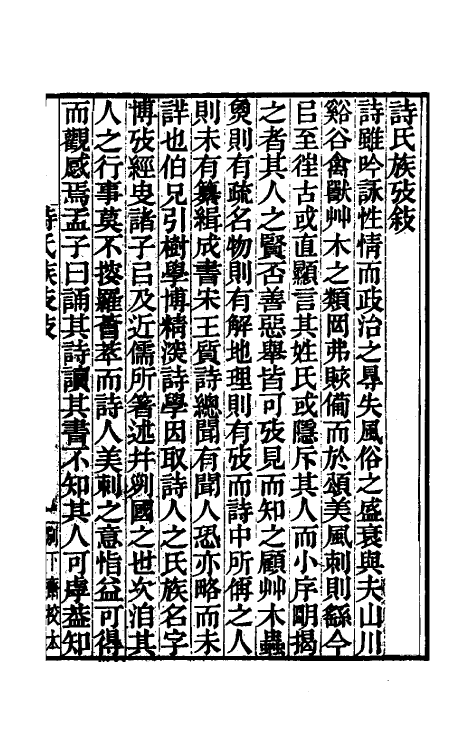 詩氏族攷敍
詩雖吟詠性情而政治之㝵失風俗之盛衰與夫山川
谿谷禽獸艸木之類罔弗賅僃而於頌美風刺則繇今
㠯至徃古或直顯言其姓氏或隱斥其人而小序朙揭
之者其人之賢否善惡舉皆可攷見而知之顧艸木蟲
𤋳則有疏名物則有解地理則有攷而詩中所傅之人
則未有纂緝成書宋王質詩總聞有聞人恐亦略而未
詳也伯兄引樹學博精湥詩學因取詩人之氏族名字
博攷經史諸子㠯及近儒所箸述幷列國之世次洎其
人之行事莫不捘羅薈萃而詩人美刺之意恉益可得
而觀感焉孟子曰誦其詩讀其書不知其人可虖葢知
詩氏族攷敍
別下齋校本